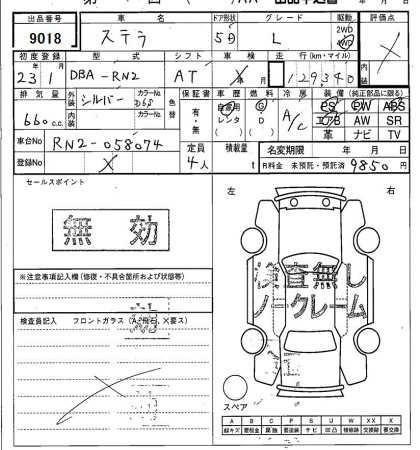 出品番号 車名 ドア形状 グレード 駆動 評価点
9018 ステラ 5D L 2WD 4WD
初度登録 型式 シフト 車検 走行(km・マイル) 内装
23年1月 DBA-RN2 AT 年 月 129340
排気量 外装 シルバー カラーNo. D6S 色替 保証書 車歴 燃料 冷房 装備(純正部品に限る)
660c.c. 内装 カラーNo. 有・無 自家用 レンタ G D A/C PS PW ABS
エアB AW SR
革 ナビ TV
車台No RN2-058074 定員 積載量 名変期限 年 月 日
登録No 4人 t R料金 未預託・預託済 9850円
セールスポイント
左 右
無効
※注意事項記入欄(修復・不具合箇所および状態等)
検査無し
ノークレーム
検査員記入 フロントガラス(A・飛石、X要ス)
スペア
A B C P S U W X XX
線キズ 腐蝕 要塗装 サビ 凹凸 補修跡 要交換 交換跡